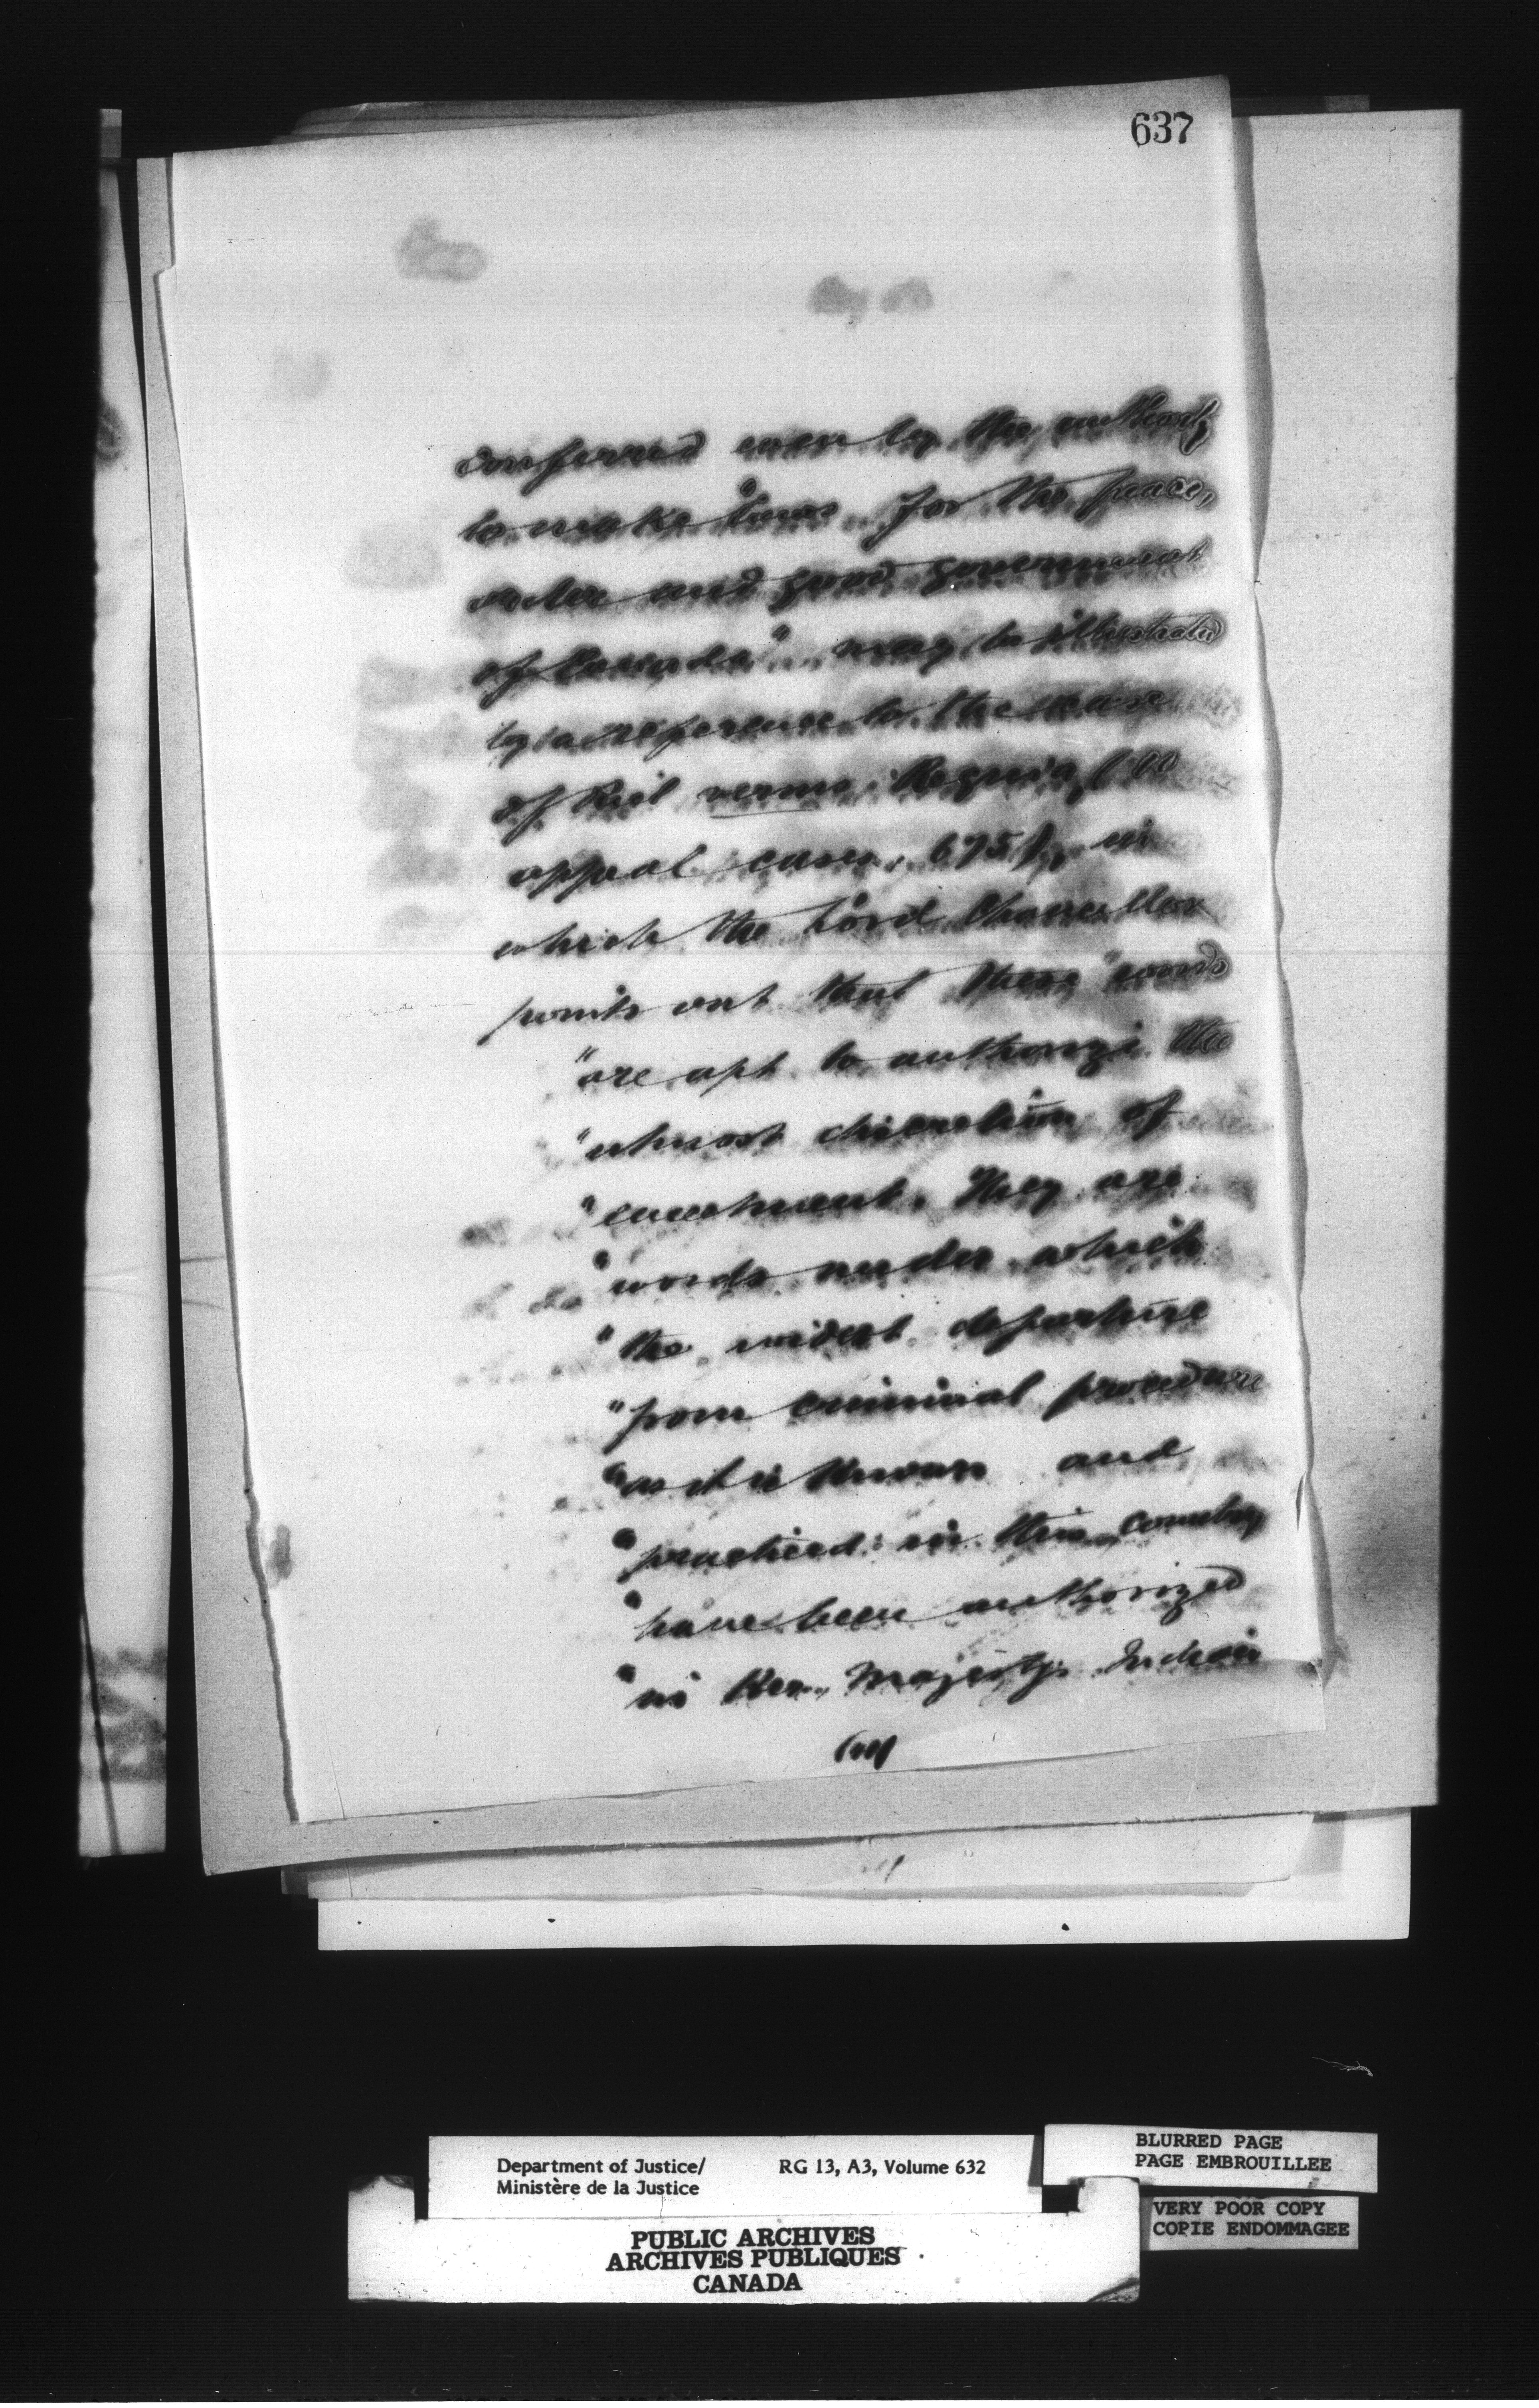 637
conferred even by the authority
to make "laws for the peace,
order and good government
of Canada" may be illustrated
by a reference to the case
of Riel versus Regina, (10
appeal cases, 675), in
which the Lord Chancellor
points out that these "words
"are apt to authorize the
"utmost discretion of
"enactment. They are
"words under which
"the widest departure
"from criminal procedure
"as it is known and
"practiced in this country
"have been authorized
"in Her Majesty's Indian
Department of Justice/ RG 13, A3, Volume 632
Ministère de la Justice
BLURRED PAGE
PAGE EMBROUILLEE
VERY POOR COPY
COPIE ENDOMMAGEE
PUBLIC ARCHIVES
ARCHIVES PUBLIQUES
CANADA